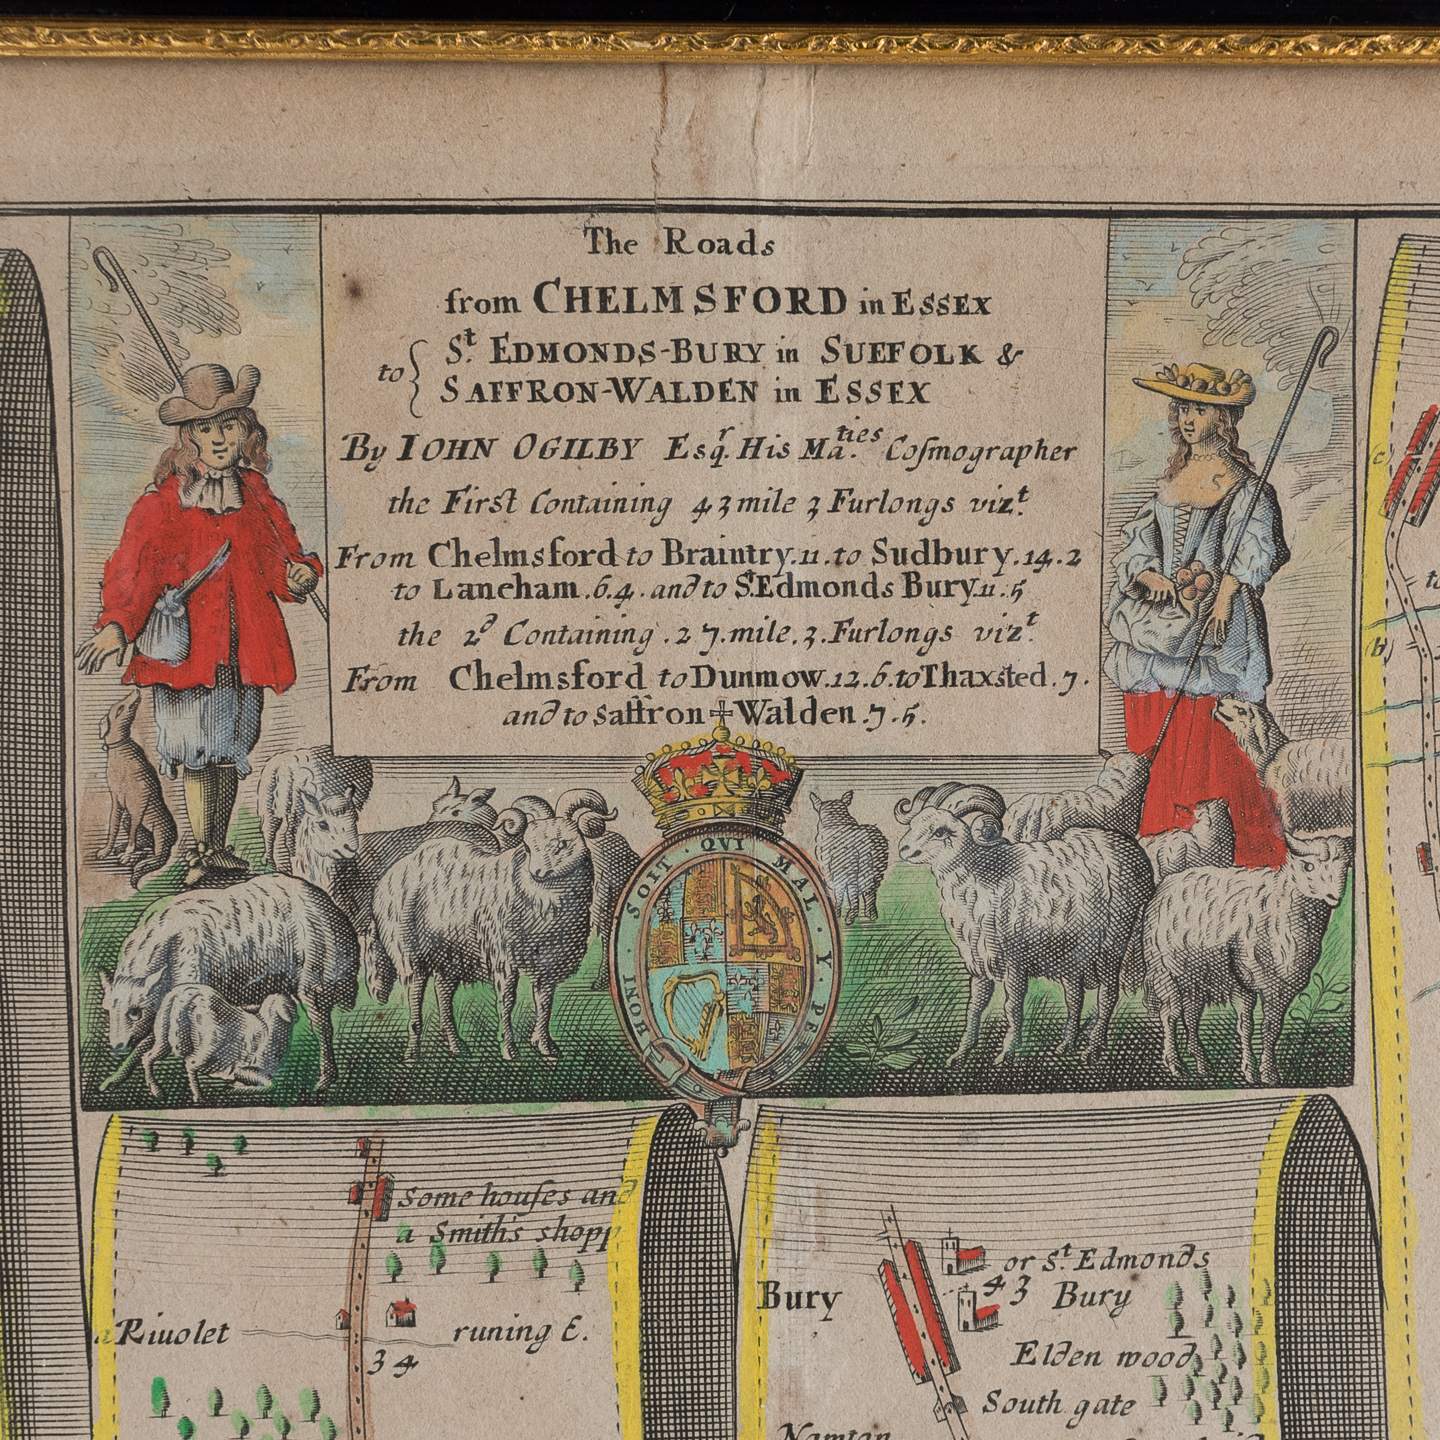 The Roads
from CHELMSFORD in ESSEX
to { St. EDMONDS-BURY in SUFFOLK &
SAFFRON-WALDEN in ESSEX
By IOHN OGILBY Esqr. His Maties. Coſmographer
the First Containing 43 mile 3 Furlongs vizt.
From Chelmsford to Braintry.11.to Sudbury.14.2
to Laneham.6.4.and to St.Edmonds Bury.11.5
the 2d Containing.27.mile.3.Furlongs vizt.
From Chelmsford to Dunmow.12.6.to Thaxsted.7.
and to saffron Walden.7.5.
HONI · SOIT · QVI MAL · Y · PE
c
b
Some houſes and
a Smith's shopp
a Riuolet runing E.
34
or St. Edmonds
43 Bury
Bury
Elden wood
South gate